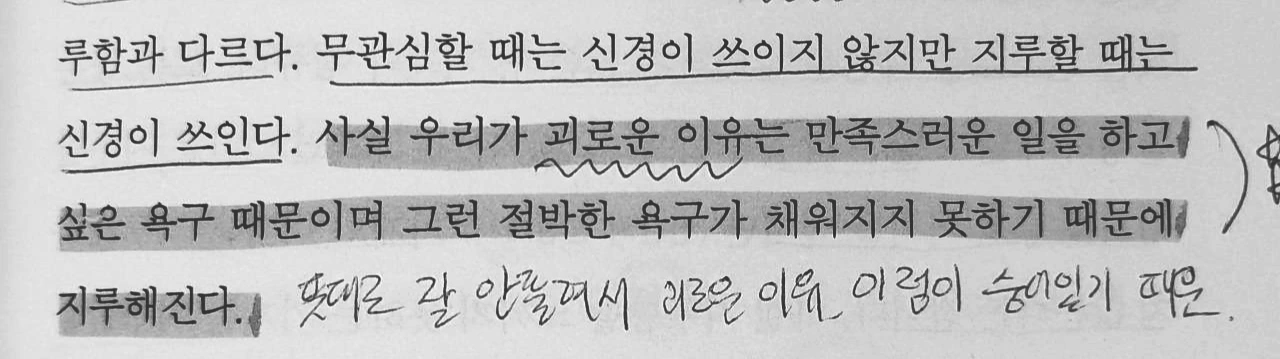 루함과 다르다. 무관심할 때는 신경이 쓰이지 않지만 지루할 때는
신경이 쓰인다. 사실 우리가 괴로운 이유는 만족스러운 일을 하고
싶은 욕구 때문이며 그런 절박한 욕구가 채워지지 못하기 때문에
지루해진다. 뜻대로 잘 안 괴로운 이유 때문.